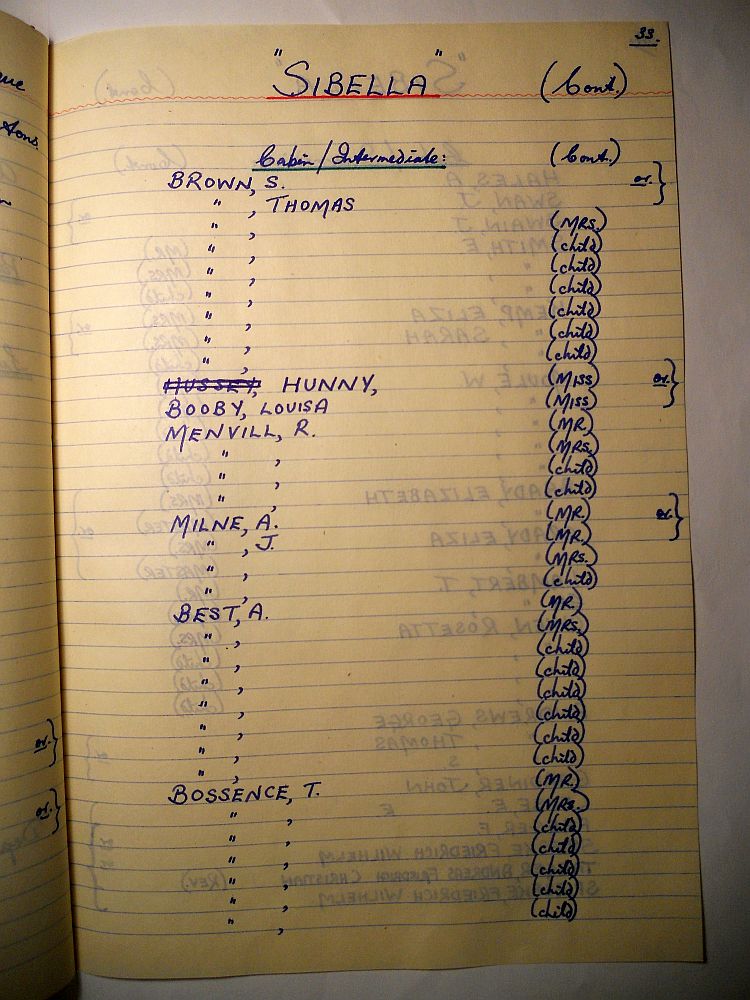 33.
"SIBELLA" (Cont.)
Cabin/Intermediate: (Cont.)
BROWN, S. or. }
" , THOMAS
" , (MRS.)
" , (child)
" , (child)
" , (child)
" , (child)
" , (child)
" , (child)
HUSSEY, HUNNY, (MISS) or. }
BOOBY, LOUISA (MISS)
MENVILL, R. (MR.)
" , (MRS.)
" , (child)
" , (child)
MILNE, A. (MR.) or. }
" , J. (MR.)
" , (MRS.)
" , (child)
BEST, A. (MR.)
" , (MRS.)
" , (child)
" , (child)
" , (child)
" , (child)
" , (child)
" , (child)
BOSSENCE, T. (MR.)
" , (MRS.)
" , (child)
" , (child)
" , (child)
" , (child)
" , (child)
or. }
or. }